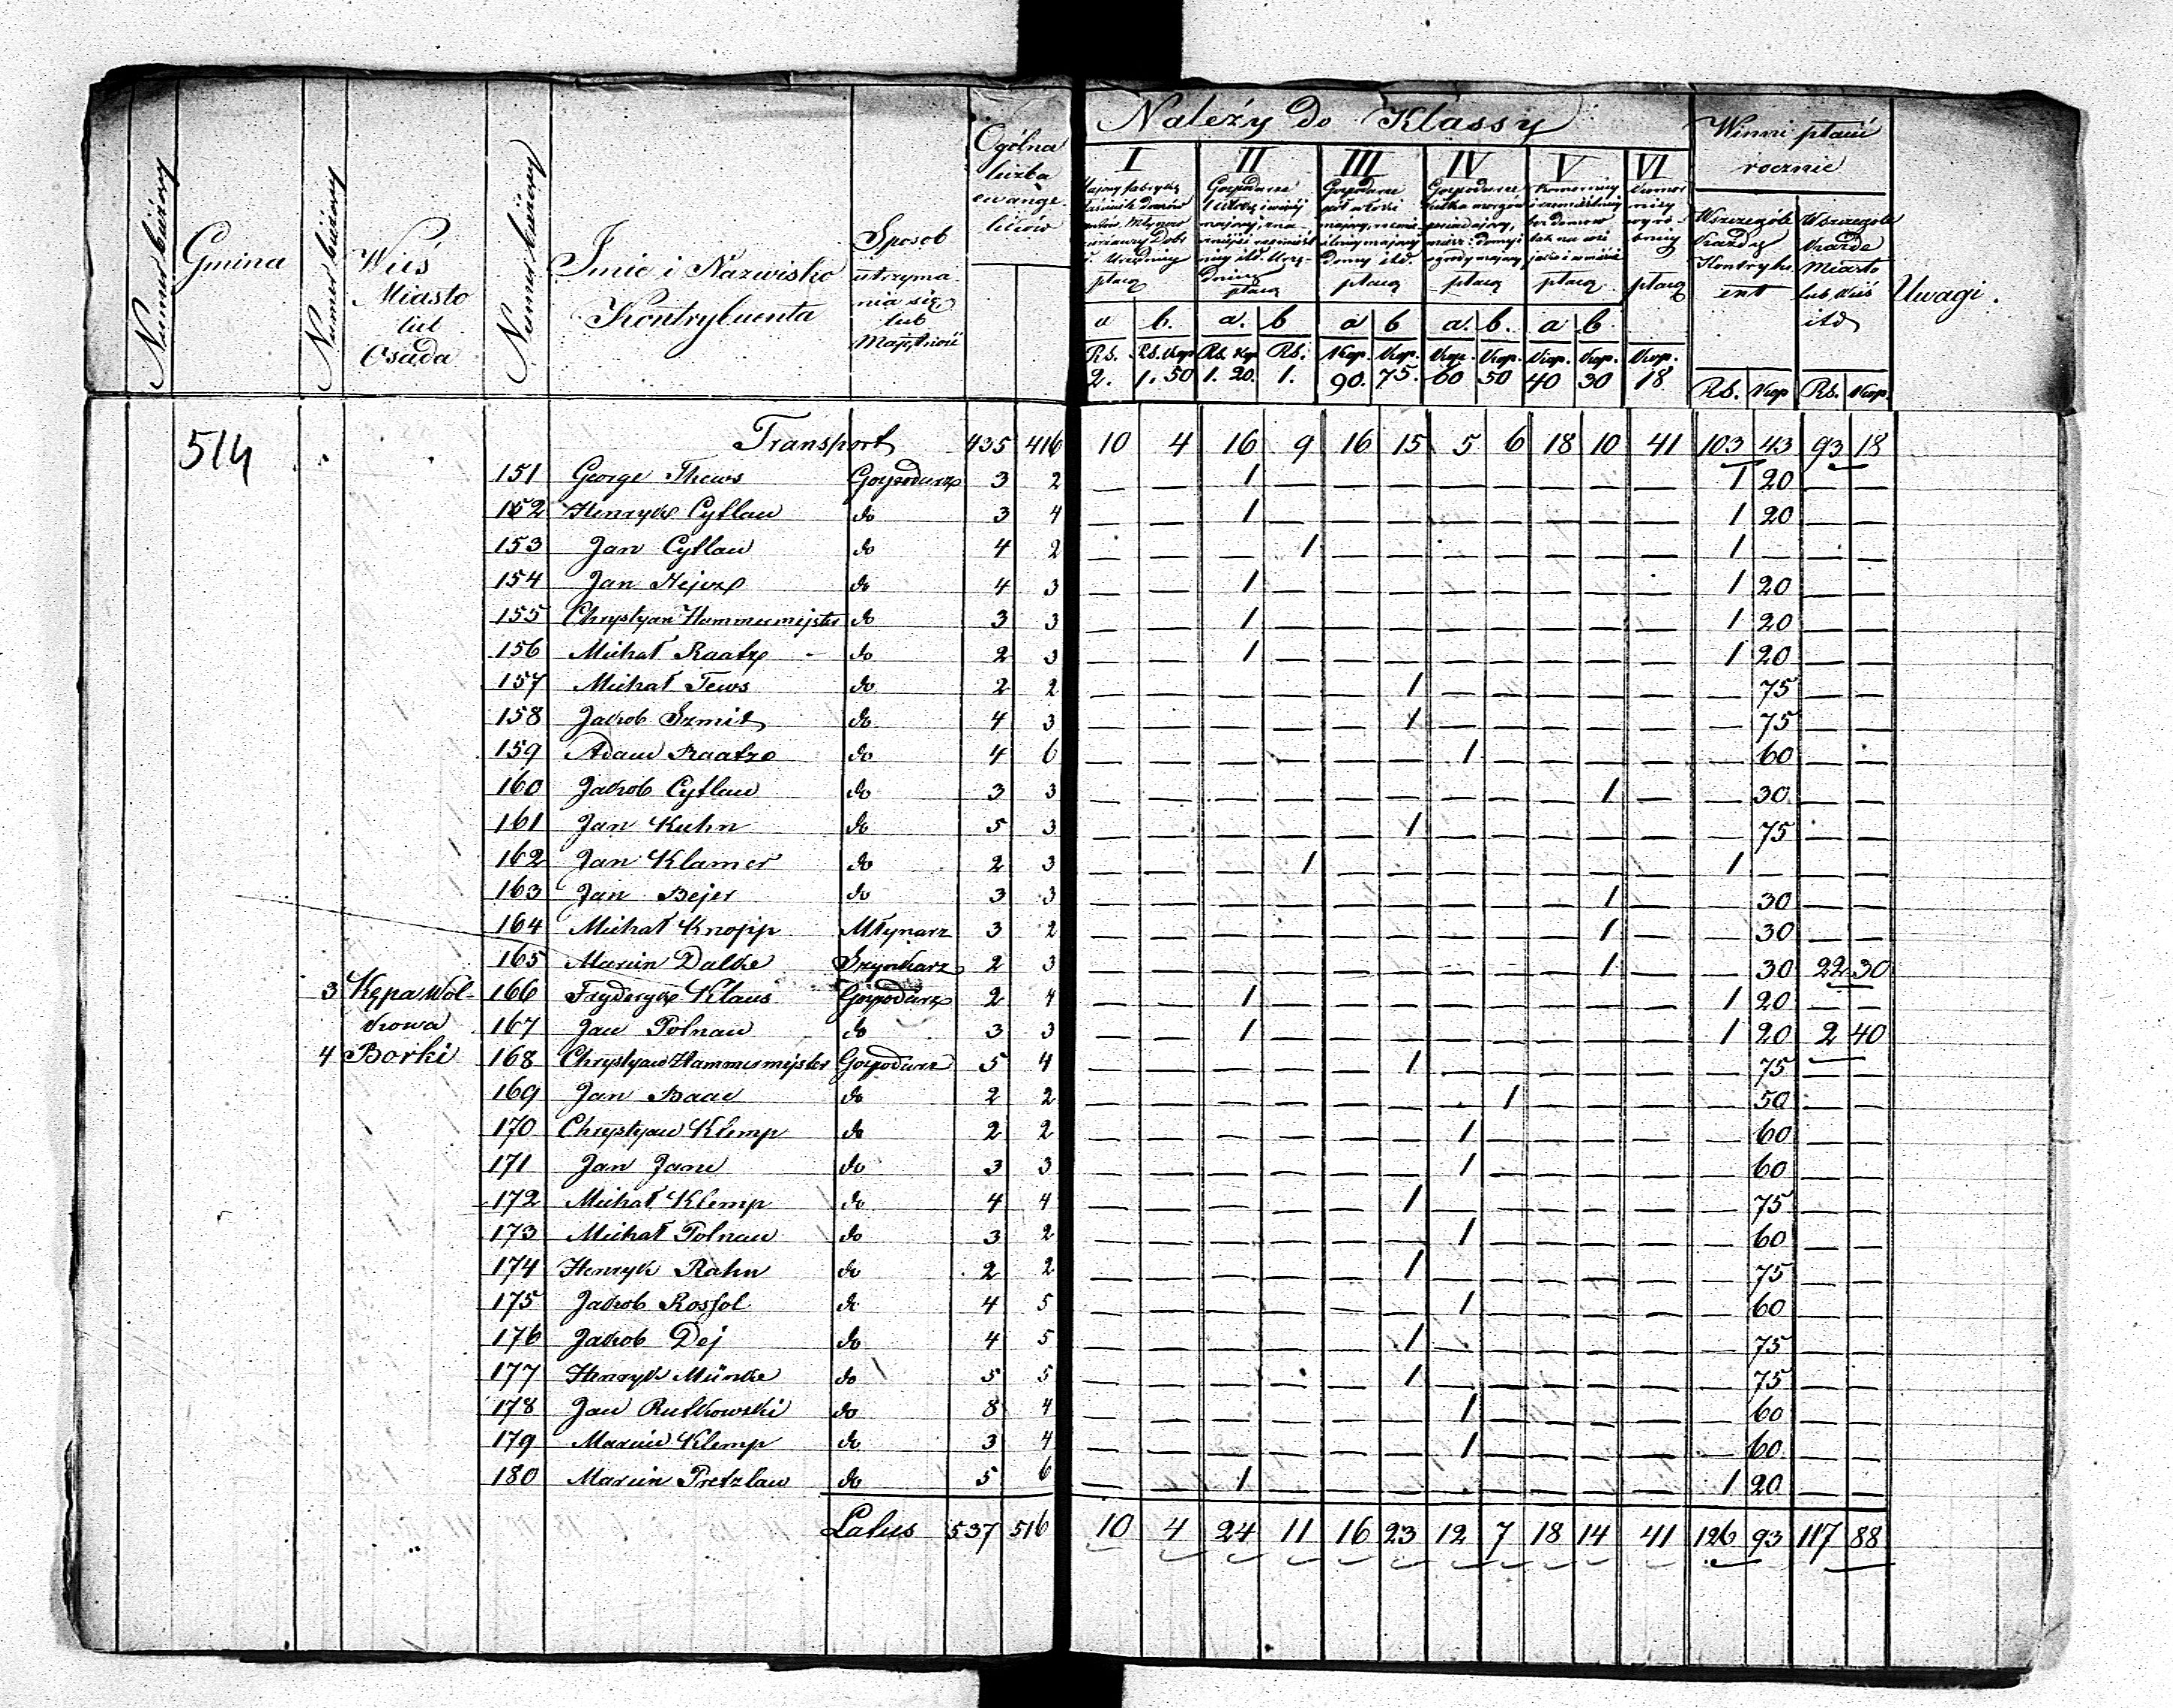 Numer bieżący
Gmina
Numer bieżący
Wieś
Miasto
lub
Osada
Numer bieżący
Imie i Nazwisko
Kontrybuenta
Sposob
utrzyma
nia się
lub
Majątkow
Ogólna
liczba
ewange
lików
Należy do Klassy
I II III IV V VI
płacą płacą płacą płacą płacą płacą
a b. a. b a b a. b. a b
Rs. Rs. Kop Rs. Kop Rs. Kop. Kop. Kop. Kop. Kop. Kop. Kop.
2. 1.50 1. 20. 1. 90. 75. 60 50 40 30 18
Winni płacić
rocznie
Wszczególe
Każdy
Kontrybu
ent
Wszczególe
Każde
Miasto
lub Wieś
itd
Rs. Kop Rs. Kop.
Uwagi.
514 Transport 435 416 10 4 16 9 16 15 5 6 18 10 41 103 43 93 18
151 George Thews Gospodarz 3 2 — — 1 — — — — — — — — 1 20 — —
152 Henryk Cytlau do 3 4 — — 1 — — — — — — — — 1 20 — —
153 Jan Cytlau do 4 2 — — — 1 — — — — — — — 1 — — —
154 Jan Hejoze do 4 3 — — 1 — — — — — — — — 1 20 — —
155 Chrystyan Hammermejster do 3 3 — — 1 — — — — — — — — 1 20 — —
156 Michał Raatz do 2 3 — — 1 — — — — — — — — 1 20 — —
157 Michał Tews do 2 2 — — — — — 1 — — — — — — 75 — —
158 Jakob Szmit do 4 3 — — — — — 1 — — — — — — 75 — —
159 Adam Raatze do 4 6 — — — — — — 1 — — — — — 60 — —
160 Jakob Cytlau do 3 3 — — — — — — — — — 1 — — 30 — —
161 Jan Kuhn do 5 3 — — — — — 1 — — — — — — 75 — —
162 Jan Klamer do 2 3 — — — 1 — — — — — — — 1 — — —
163 Jan Bejer do 3 3 — — — — — — — — — 1 — — 30 — —
164 Michał Knopp Młynarz 3 2 — — — — — — — — — 1 — — 30 — —
165 Marcin Dalke Szynkarz 2 3 — — — — — — — — — 1 — — 30 22 30
3 Kępa Wol- 166 Fryderyk Klaus Gospodarz 2 4 — — 1 — — — — — — — — 1 20 — —
kowa 167 Jan Polnau do 3 3 — — 1 — — — — — — — — 1 20 2 40
4 Borki 168 Chrystyan Hammermejster Gospodarz 5 4 — — — — — 1 — — — — — — 75 — —
169 Jan Baae do 2 2 — — — — — — — 1 — — — — 50 — —
170 Chrystyan Klemp do 2 2 — — — — — — 1 — — — — — 60 — —
171 Jan Janc do 3 3 — — — — — — 1 — — — — — 60 — —
172 Michał Klemp do 4 4 — — — — — 1 — — — — — — 75 — —
173 Michał Polnau do 3 2 — — — — — — 1 — — — — — 60 — —
174 Henryk Rahn do 2 2 — — — — — 1 — — — — — — 75 — —
175 Jakob Rossol do 4 5 — — — — — — 1 — — — — — 60 — —
176 Jakob Dej do 4 5 — — — — — 1 — — — — — — 75 — —
177 Henryk Münke do 5 5 — — — — — 1 — — — — — — 75 — —
178 Jan Rutkowski do 8 4 — — — — — — 1 — — — — — 60 — —
179 Marcin Klemp do 3 4 — — — — — — 1 — — — — — 60 — —
180 Marcin Pretzlau do 5 6 — — 1 — — — — — — — — 1 20 — —
Latus 537 516 10 4 24 11 16 23 12 7 18 14 41 126 93 117 88